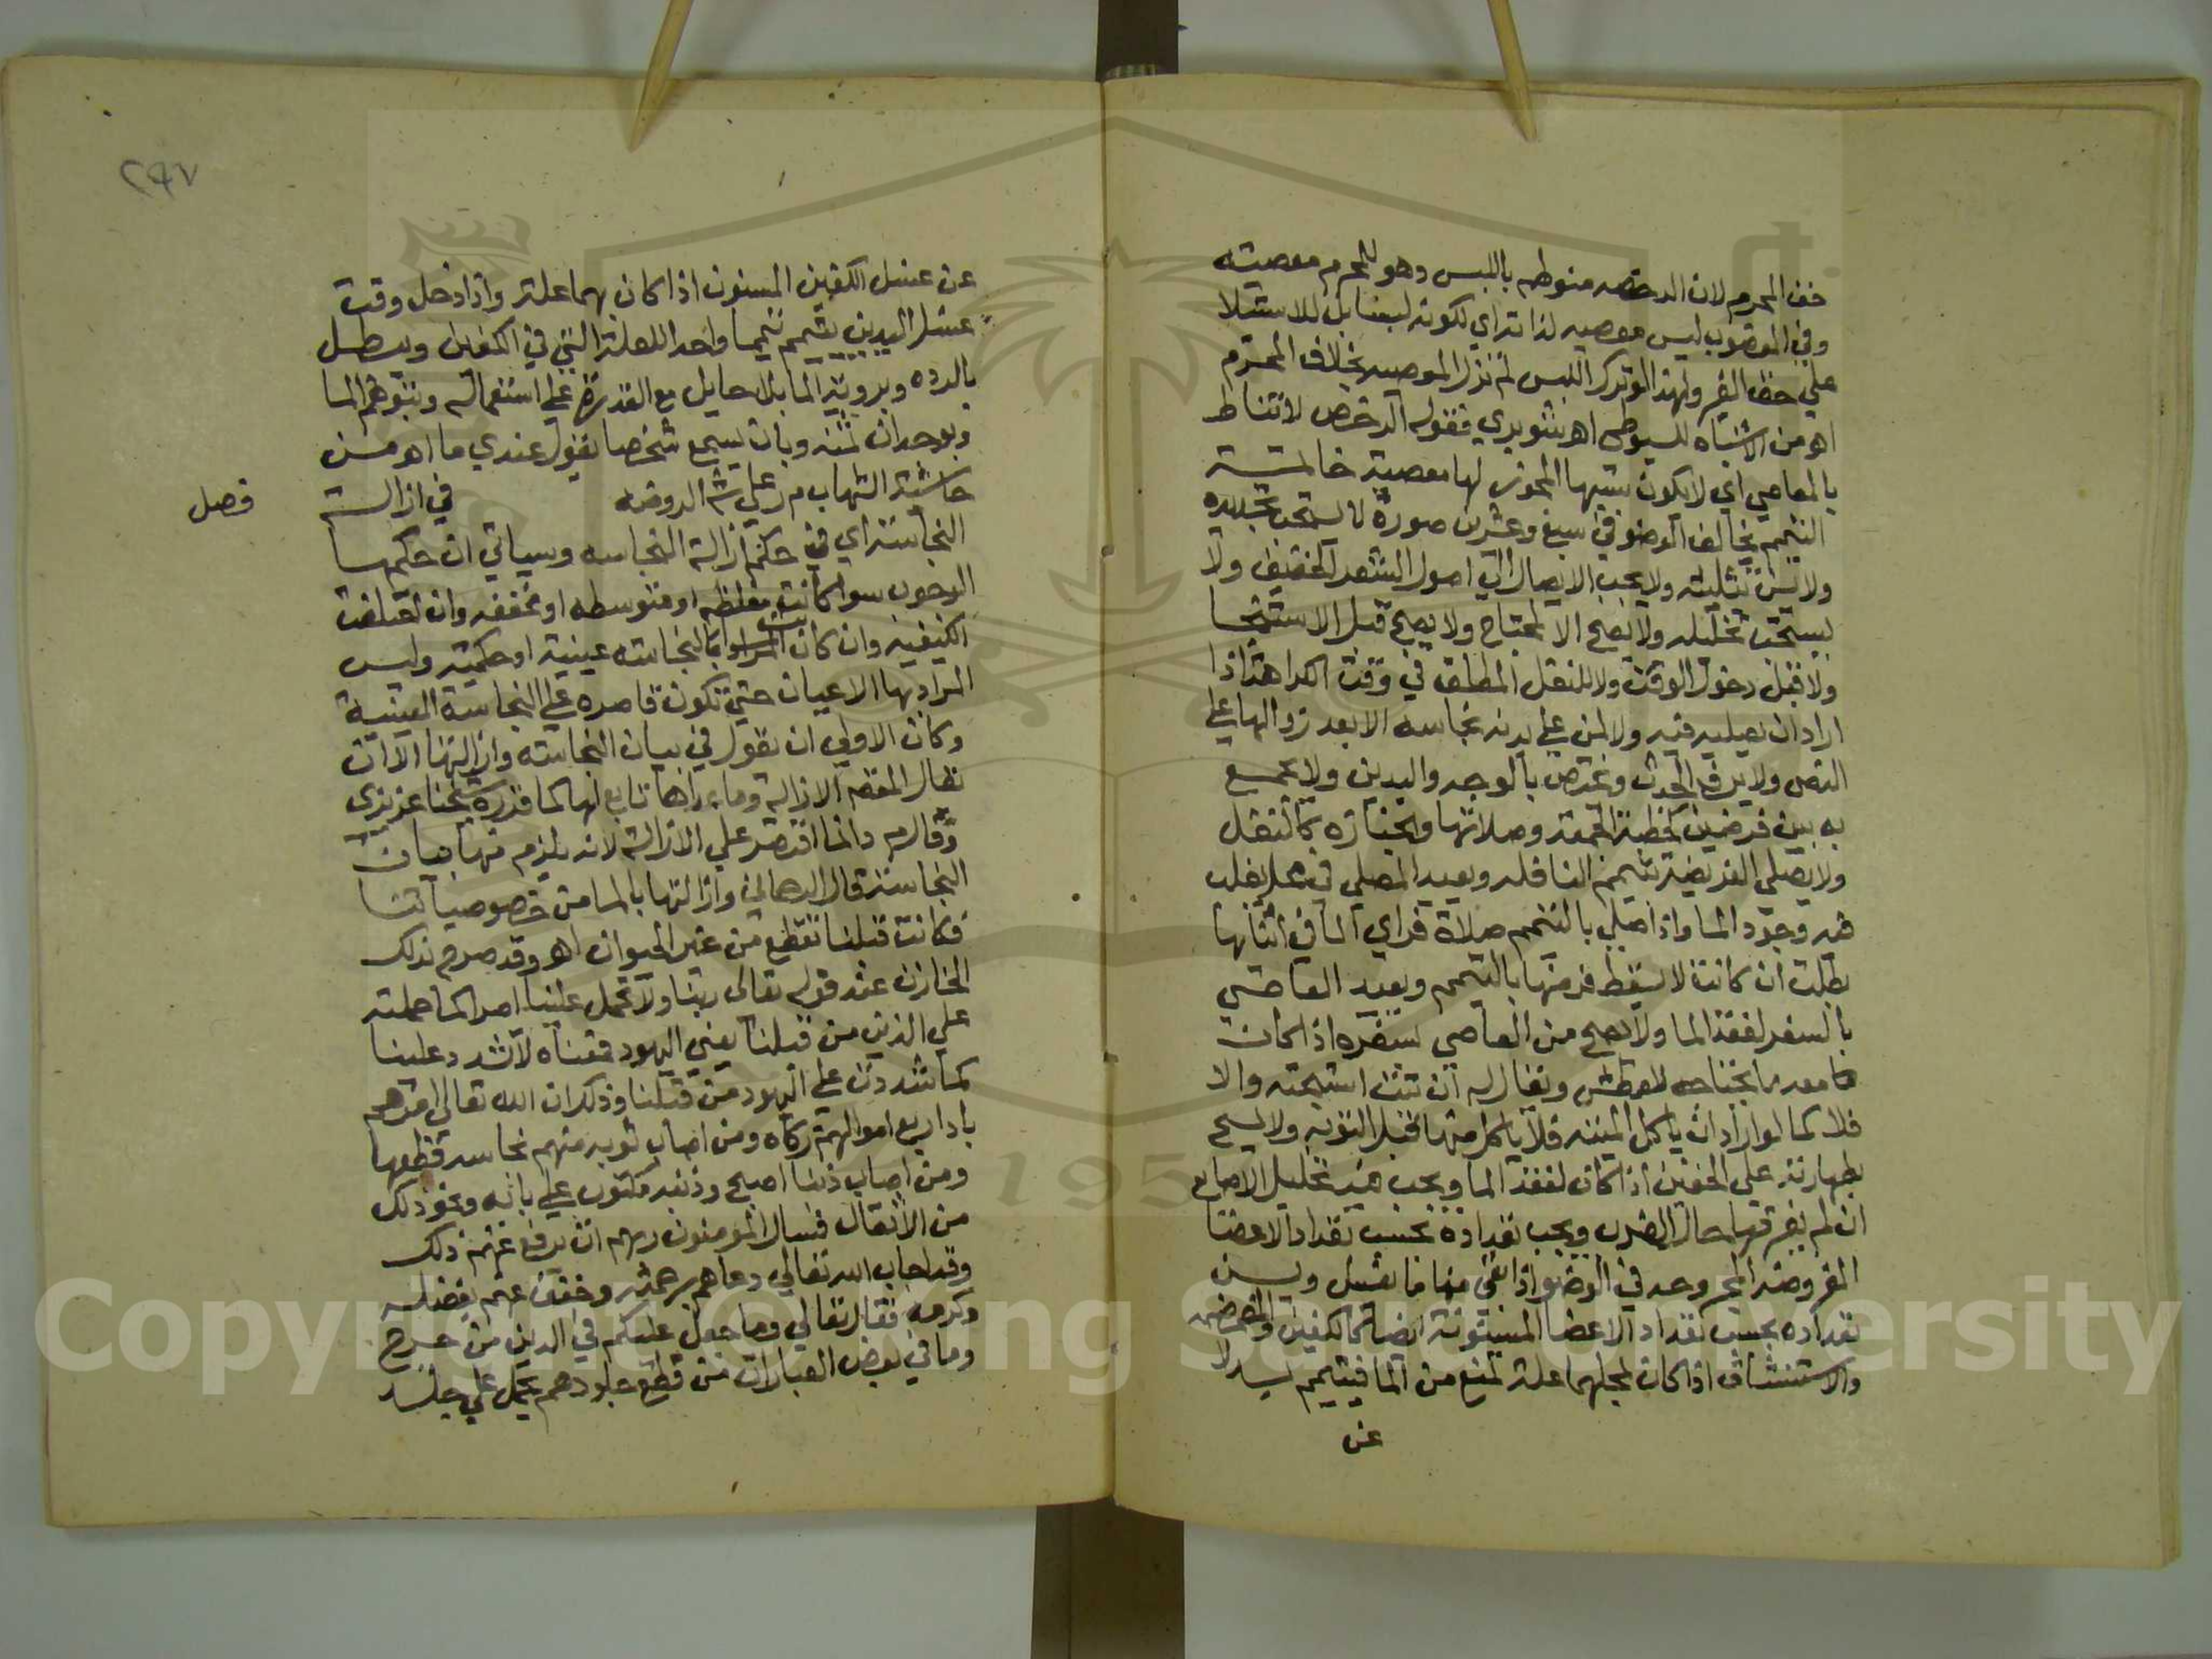 خف المحرم لان الرخصه منوطه باللبس وهو للمحرم معصيته
وفي المغصوب ليس معصيه لذاته اي لكونه لبسا بل للاستيلا
علي حق الغير ولهذا لو ترك اللبس لم تزل المعصيه بخلاف المحرم
اهو من الاشباه للسيوطي اهو شوبري فقوله الرخص لا تناط
بالمعاصي اي لا يكون سببها المجوز لها معصية خاتمة
التيمم يخالف الوضو في سبع وعشرين صورة لا يستحب تجديده
ولا يسن تثليثه ولا يجب الايصال الي اصول الشعر الخفيف ولا
يستحب تخليله ولا يصح الا لمحتاج ولا يصح قبل الاستنجا
ولا قبل دخول الوقت ولا للنفل المطلق في وقت الكراهة اذا
اراد ان يصليه فيه ولا لمن علي بدنه نجاسه الا بعد زوالها علي
النص ولا يرفع الحدث ويختص بالوجه واليدين ولا يجمع
به بين فرضين كخطبة الجمعة وصلاتها والجنازه كالنفل
ولا يصلي الفريضة بتيمم النافله ويعيد المصلي في محل يغلب
فيه وجود الما واذا صلي بالتيمم صلاة فراي الما في اثنائها
بطلت ان كانت لا يسقط فرضها بالتيمم ويعيد العاصي
بالسفر لفقد الما ولا يصح من العاصي بسفره اذا كان
معه ما يحتاجه للعطش ويقال له ان تبت استبحته والا
فلا كما لو اراد ان ياكل الميتة فلا ياكل منها قبل التوبه ولا يمسح
بطهارته علي الخفين اذا كان لفقد الما ويجب فيه تخليل الاصابع
ان لم يفرقها حال الضرب ويجب تعداده بحسب تعداد الاعضا
المفروضه المجروحه في الوضو اذا بقي منها ما يغسل ويسن
تعداده بحسب تعداد الاعضا المسنونة ايضا كالكفين والمضمضه
والاستنشاق اذا كان بمحلهما علة تمنع من الما فيتيمم بدلا
عن
٢٩٧
عن غسل الكفين المسنون اذا كان بهما علة واذا دخل وقت
غسل اليدين يتيمم تيمما واحدا للعلة التي في الكفين ويبطل
بالرده وبروية الما بلا حايل مع القدرة علي استعماله وبتوهم الما
وبوجدان ثمنه وبان يسمع شخصا يقول عندي ما اهو من
حاشية الشهاب م ر علي ش الروضه في ازالة
فصل
النجاسة اي في حكم ازالة النجاسه وسياتي ان حكمها
الوجوب سوا كانت مغلظه او متوسطه او مخففه وان اختلفت
الكيفيه وان كان المراد بالنجاسة عينية او حكمية وليس
المراد بها الاعيان حتي تكون قاصره علي النجاسة العينية
وكان الاولي ان يقول في بيان النجاسة وازالتها الا ان
يقال المقصود الازالة وما عداها تابع لها كما قرره شيخنا عزيزي
وقال م د انما اقتصر علي الازالة لانه يلزم منها بيان
النجاسة قال الرحماني وازالتها بالما من خصوصياتنا
فكانت قبلنا تقطع من غير الحيوان اهو وقد صرح بذلك
الخازن عند قوله تعالي ربنا ولا تحمل علينا اصرا كما حملته
علي الذين من قبلنا يعني اليهود فمعناه لا تشدد علينا
كما شددت علي اليهود من قبلنا وذكر ان الله تعالي امرهم
بادا ربع اموالهم زكاه ومن اصاب ثوبه منهم نجاسه قطعها
ومن اصاب ذنبا اصبح وذنبه مكتوب علي بابه ونحو ذلك
من الاثقال فسال المومنون ربهم ان يرفع عنهم ذلك
وقد اجاب الله تعالي دعاهم برحمته وخفف عنهم بفضله
وكرمه فقال تعالي وما جعل عليكم في الدين من حرج
وما في بعض العبارات من قطع جلودهم يحمل علي جلد
Copyright © King Saud University